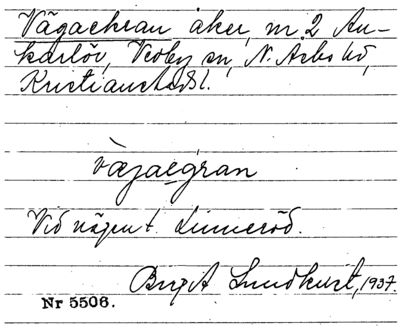 Vägaekran åker, nr 2 An-
karlöv, Vedby sn, N. Åsbo hd,
Kristianstads l.
vægaegran
Vid vägen t. Linneröd.
Birgit Lundkvist, 1937.
Nr 5506.